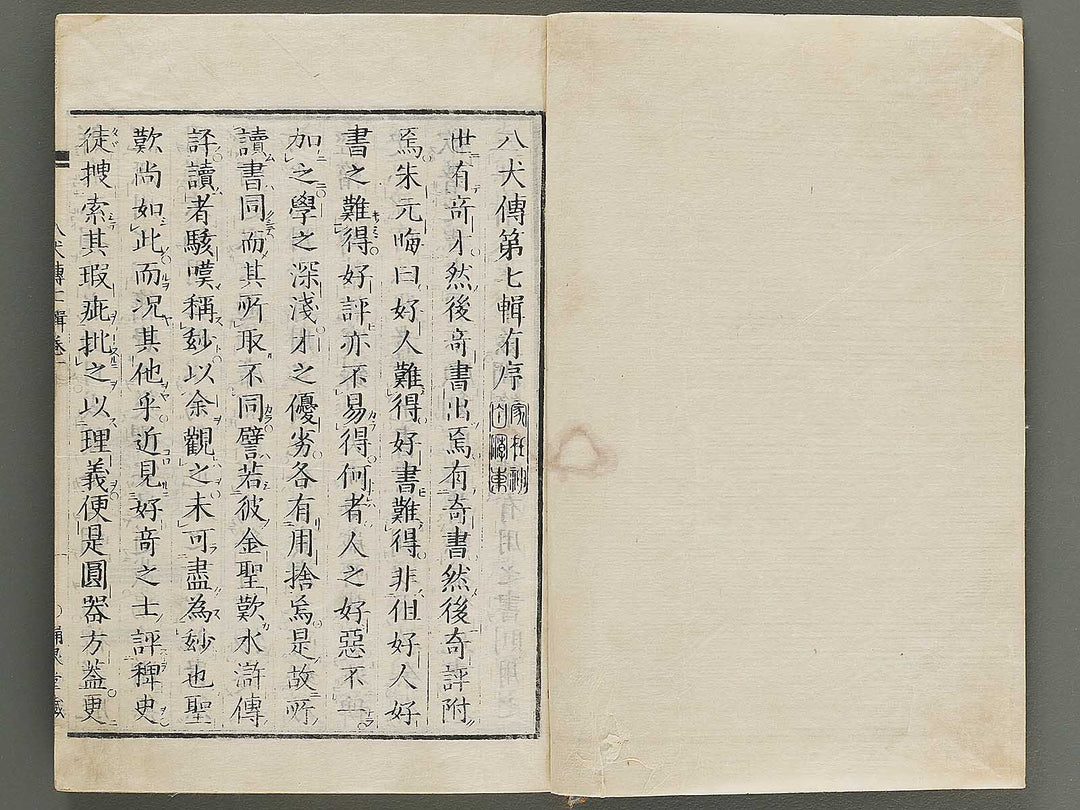 八犬傳第七輯有序
世有奇才然後奇書出焉有奇書然後奇評附
焉朱元晦曰好人難得好書難得非但好人好
書之難得好評亦不易得何者人之好惡不一
加之學之深淺才之優劣各有用捨焉是故所
讀書同而其所取不同譬若彼金聖歎水滸傳
評讀者駭嘆稱玅以余觀之未可盡為玅也聖
歎尚如此而況其他乎近見好奇之士評稗史
徒搜索其瑕疵批之以理義便是圓器方蓋更
八犬傳七輯卷一